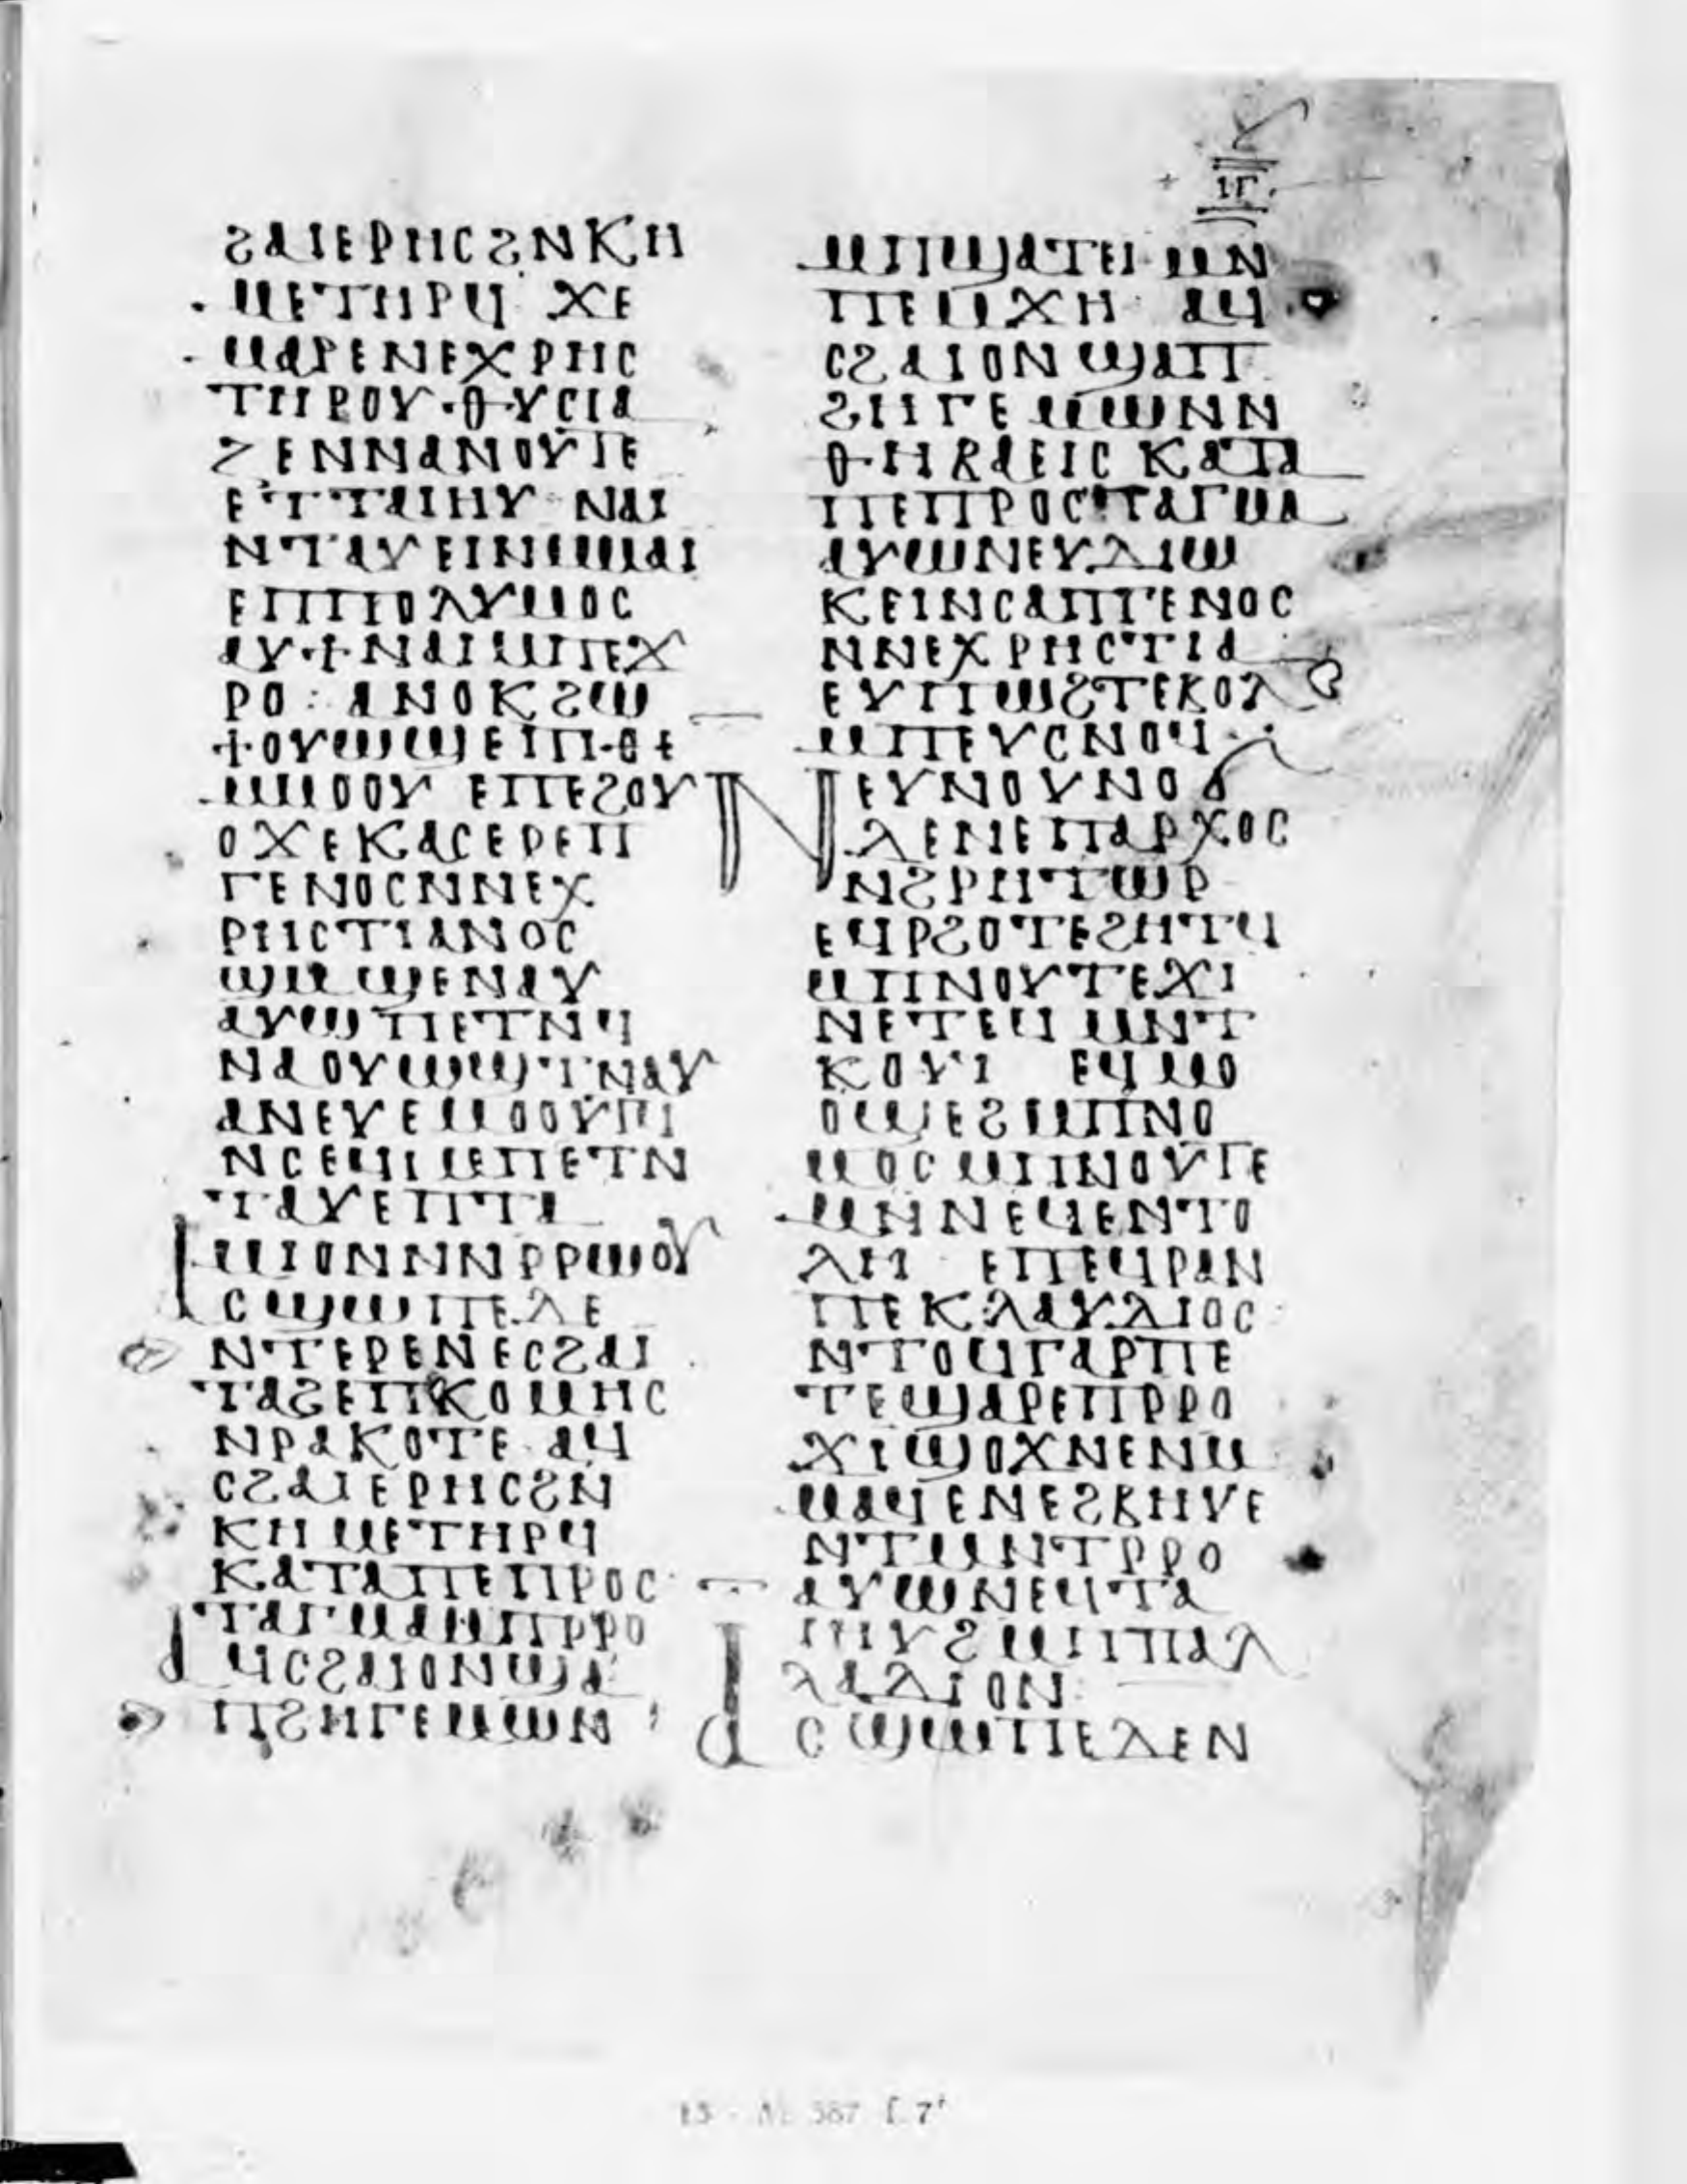 ⲓⲅ
ϩⲁⲓⲉⲣⲏⲥϩⲛⲕⲏ
ⲙⲉⲧⲏⲣϥ ϫⲉ
ⲙⲁⲣⲉⲛⲉⲭⲣⲏⲥ
ⲧⲏⲣⲟⲩ·ⲑⲩⲥⲓⲁ
ϩⲉⲛⲛⲁⲛⲟⲩⲧⲉ
ⲉⲧⲧⲁⲓⲏⲩ ⲛⲁⲓ
ⲛⲧⲁⲩⲉⲓⲛⲉⲙⲙⲁⲓ
ⲉⲡⲡⲟⲗⲩⲙⲟⲥ
ⲁⲩϯⲛⲁⲓⲙⲡⲉϫ
ⲣⲟ: ⲁⲛⲟⲕϩⲱ
ϯⲟⲩⲱϣⲉⲓⲡⲓ·ⲑⲉ
ⲙⲙⲟⲟⲩ ⲉⲡⲉϩⲟⲩ
ⲟϫⲉⲕⲁⲥⲉⲣⲉⲡ
ⲅⲉⲛⲟⲥⲛⲛⲉⲭ
ⲣⲏⲥⲧⲓⲁⲛⲟⲥ
ϣⲙϣⲉⲛⲁⲩ
ⲁⲩⲱⲡⲉⲧⲛϥ
ⲛⲁⲟⲩⲱϣⲧⲛⲁⲩ
ⲁⲛⲉⲩⲉⲙⲟⲟⲩⲡⲓ
ⲛⲥⲉϥⲓⲙⲡⲉⲧⲛ
ⲧⲁⲩⲉⲡⲧⲁ
ⲙⲓⲟⲛⲛⲛⲣⲣⲱⲟⲩ
ⲥϣⲱⲡⲉⲇⲉ
ⲛⲧⲉⲣⲉⲛⲉⲥϩⲁⲓ
ⲧⲁϩⲉⲡⲕⲟⲙⲏⲥ
ⲛⲣⲁⲕⲟⲧⲉ ⲁϥ
ⲥϩⲁⲓⲉⲣⲏⲥϩⲛ
ⲕⲏⲙⲉⲧⲏⲣϥ
ⲕⲁⲧⲁⲡⲉⲡⲣⲟⲥ
ⲧⲁⲅⲙⲁⲙⲡⲣⲣⲟ
ⲁϥⲥϩⲁⲓⲟⲛϣⲁ
ⲡϩⲏⲅⲉⲙⲱⲛ
ⲙⲡϣⲁⲧⲉⲓ ⲙⲛ
ⲡⲉⲙϫⲏ ⲁϥ
ⲥϩⲁⲓⲟⲛϣⲁⲡ
ϩⲏⲅⲉⲙⲱⲛⲛ
ⲑⲏⲃⲁⲉⲓⲥ ⲕⲁⲧⲁ
ⲡⲉⲡⲣⲟⲥⲧⲁⲅⲙⲁ
ⲁⲩⲱⲛⲉⲩⲇⲓⲱ
ⲕⲉⲓⲛⲥⲁⲡⲅⲉⲛⲟⲥ
ⲛⲛⲉⲭⲣⲏⲥⲧⲓⲁ
ⲉⲩⲡⲱϩⲧⲉⲃⲟⲗ
ⲙⲡⲉⲩⲥⲛⲟϥ
ⲛⲉⲩⲛⲟⲩⲛⲟϭ
ⲇⲉⲛⲉⲡⲁⲣⲭⲟⲥ
ⲛϩⲣⲏⲧⲱⲣ
ⲉϥⲣϩⲟⲧⲉϩⲏⲧϥ
ⲙⲡⲛⲟⲩⲧⲉϫⲓ
ⲛⲉⲧⲉϥⲙⲛⲧ
ⲕⲟⲩⲓ ⲉϥⲙⲟ
ⲟϣⲉϩⲙⲡⲛⲟ
ⲙⲟⲥⲙⲡⲛⲟⲩⲧⲉ
ⲙⲛⲛⲉϥⲉⲛⲧⲟ
ⲗⲏ ⲉⲡⲉϥⲣⲁⲛ
ⲡⲉⲕⲗⲁⲩⲇⲓⲟⲥ
ⲛⲧⲟϥⲅⲁⲣⲡⲉ
ⲧⲉϣⲁⲣⲉⲡⲣⲣⲟ
ϫⲓϣⲟϫⲛⲉⲛⲙ
ⲙⲁϥⲉⲛⲉϩⲃⲏⲩⲉ
ⲛⲧⲙⲛⲧⲣⲣⲟ
ⲁⲩⲱⲛⲉϥⲧⲁ
ⲓⲏⲩϩⲙⲡⲡⲁⲗ
ⲗⲁⲇⲓⲟⲛ
ⲁⲥϣⲱⲡⲉⲇⲉⲛ